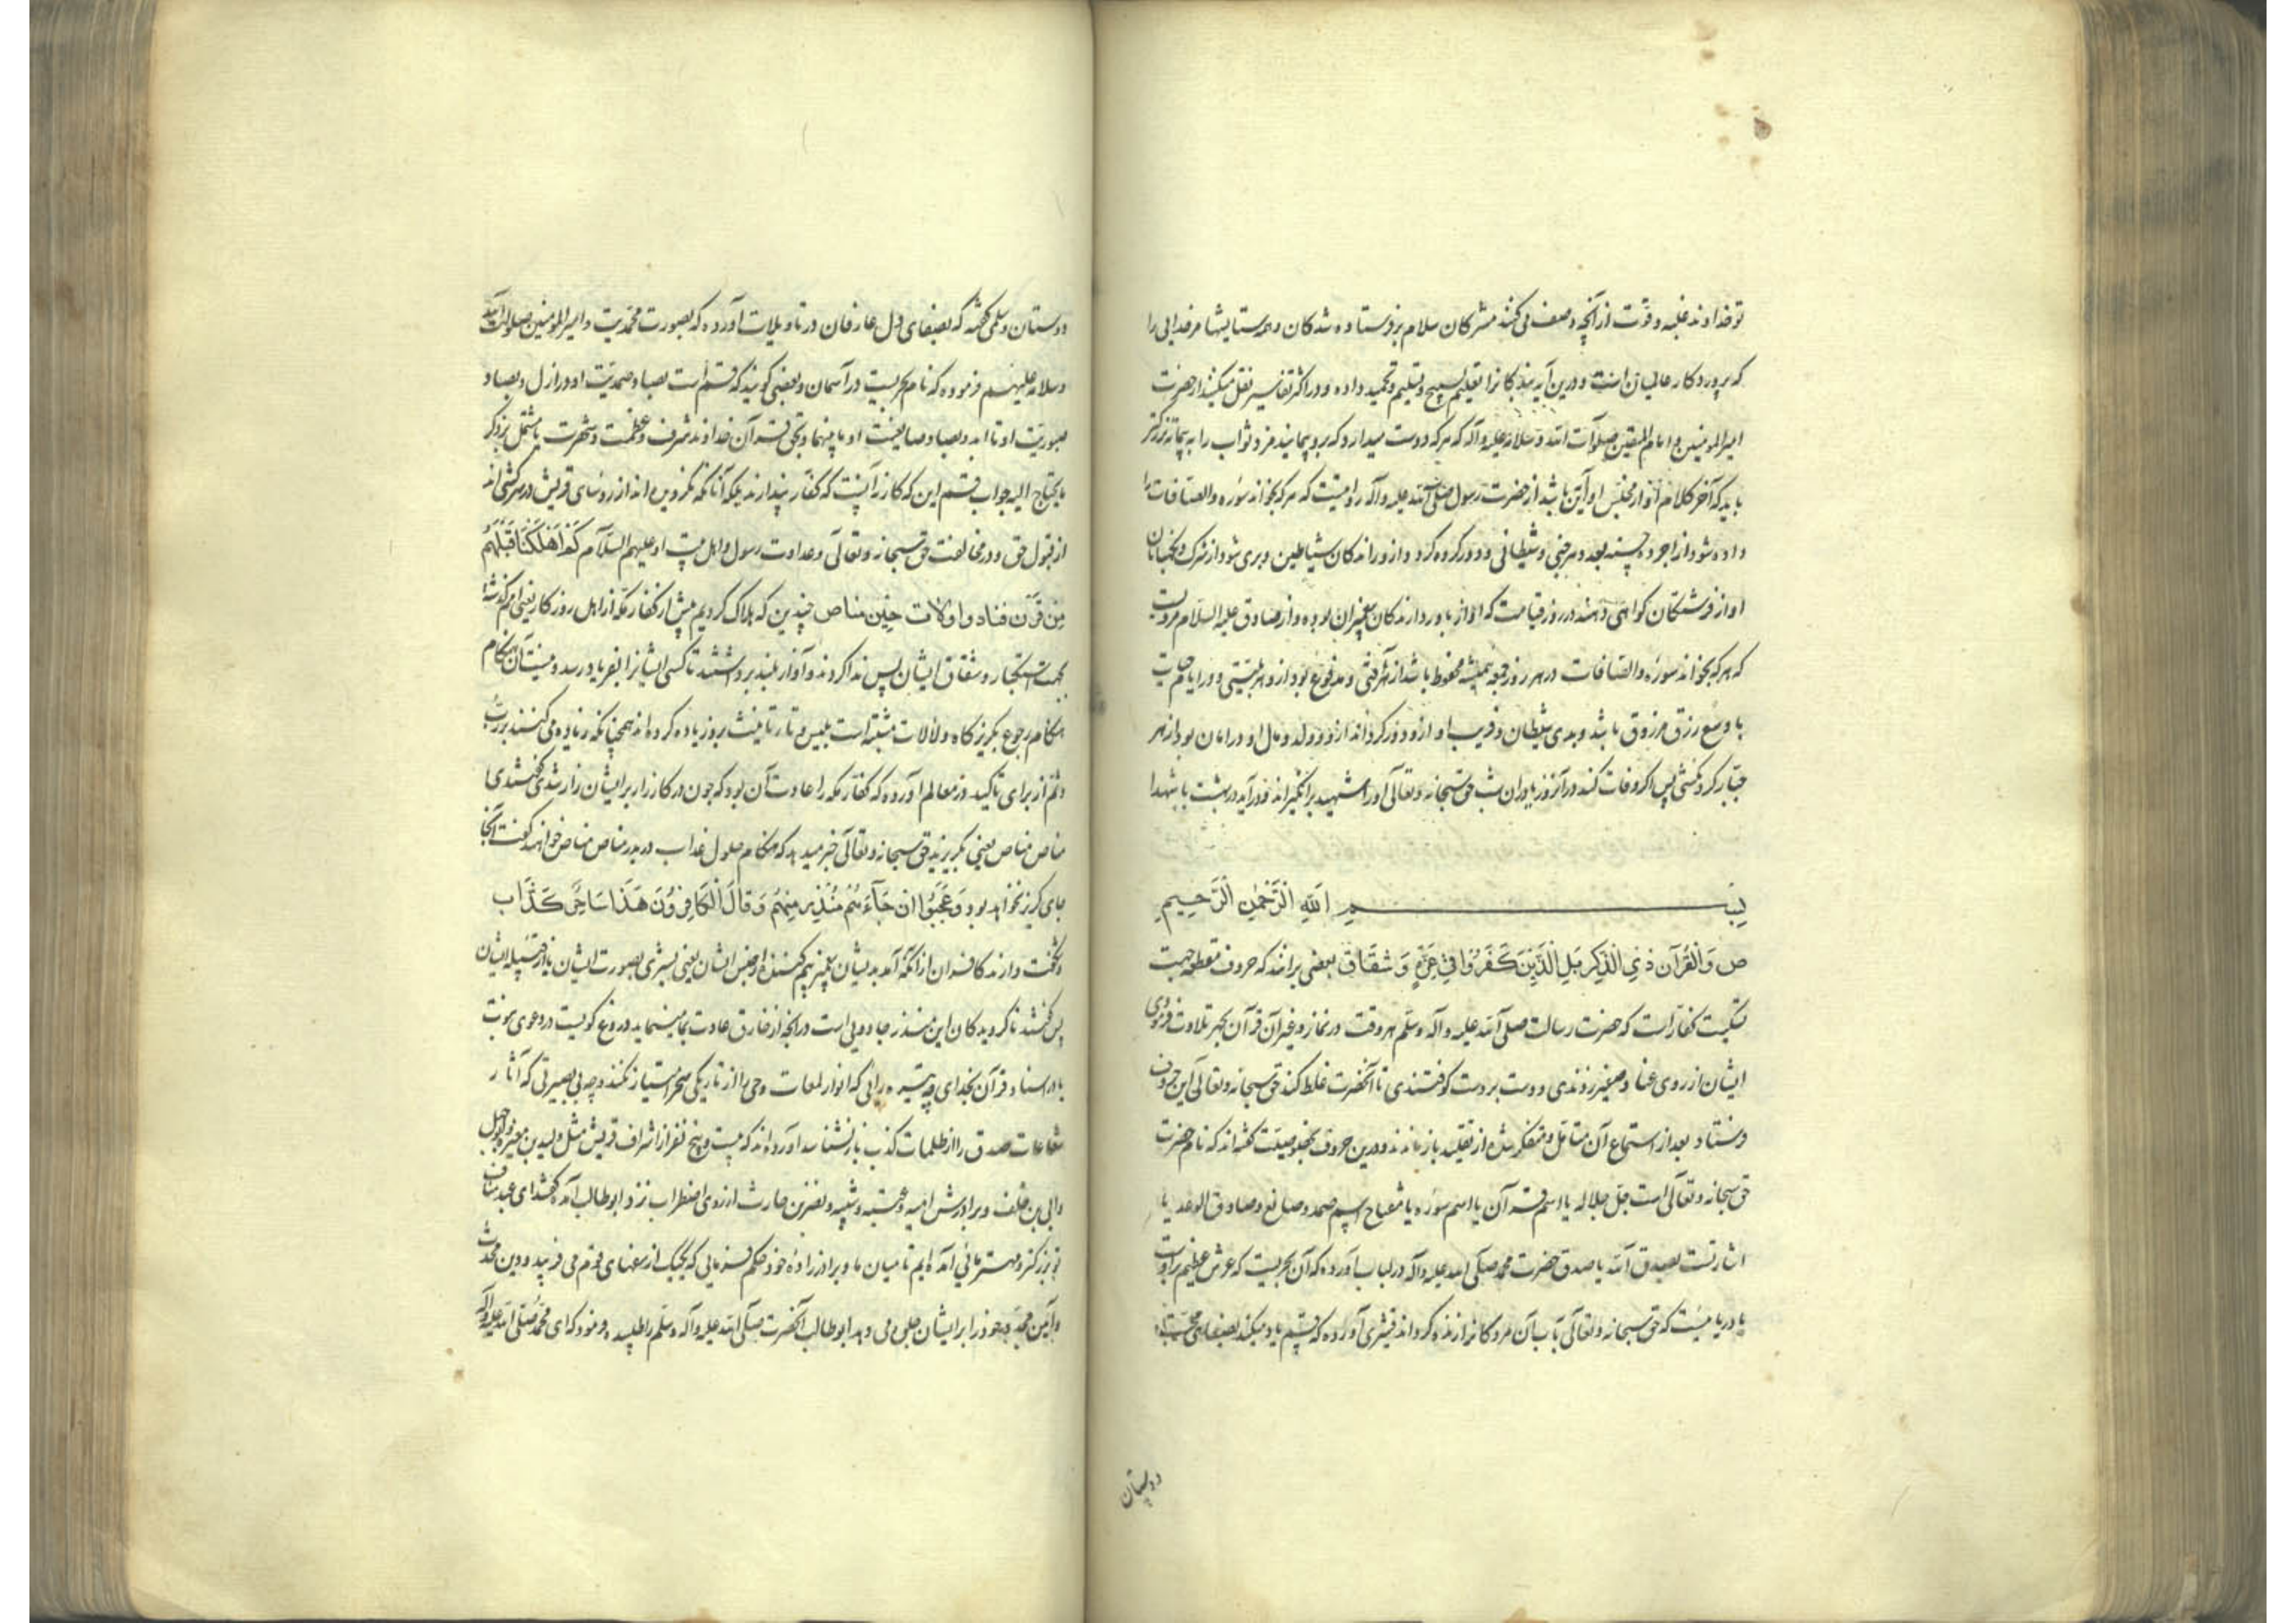 تو خداوند غلبه و قوت از آنچه وصف می کنند مشرکان سلام بر فرستاده شدکان و همه ستایشها مر خدایی را
که پرورد کار عالمیان است و درین آیه بندکانرا تعلیم تسبیح و تسلیم و تحمید داده و در اکثر تفاسیر نقل میکنند از حضرت
امیر المومنین و امام المتقین صلوات الله و سلامه علیه و آله که هر که دوست میدارد که برو پیمایند مزد و ثواب را به پیمانه بزرکتر
باید که آخر کلام او از مجلس او این باشد از حضرت رسول صلی الله علیه و آله روایتست که هر که بخواند سوره والصافات را
داده شود از اجر ده حسنه بعدد هر جنی و شیطانی و دور کرده کردد از و راندکان شیاطین و بری شود از شرک و نکهبانان
او از فرشتکان کواهی دهند در روز قیامت که او از باور دارندکان پیغمبران بوده و از صادق علیه السلام مرویست
که هر که بخواند سوره والصافات در هر روز جمعه همیشه محفوظ باشد از هر آفتی و مدفوع بود از و هر بلیتی و در ایام حیات
با وسع رزق مرزوق باشد و بدی شیطان و فریب او از و دور کرداند از و و ولد و مال او در امان بود از هر
جبار کردنکشی پس اکر وفات کند در آنروز یا در ان شب حق سبحانه و تعالی او را شهید برانکیزاند و در آید در بهشت با شهدا
بسم الله الرحمن الرحیم
ص وَالْقُرْآن ذی الذِّکر بَلِ الَّذِینَ کَفَرُوا فی عِزَّةٍ وَ شِقَاق بعضی برانند که حروف مقطعه جهت
تسکیت کفار است که حضرت رسالت صلی الله علیه و آله وسلم هر وقت در نماز و غیر آن قرآن بجهر تلاوت فرمودی
ایشان از روی عناد صفیر زدندی و دست بر دست کوفتندی تا آنحضرت غلط کند حق سبحانه و تعالی این حروف
فرستاد بعد از استماع آن متأمل و متفکر شده از تغلیط باز ماندند و درین حروف بخصوصیت کفته اند که نام حضرت
حق سبحانه و تعالی است جل جلاله یا اسم قرآن یا اسم سوره یا مفتاح اسم صمد و صانع و صادق الوعد یا
اشارتست بصدق الله یا صدق حضرت محمد صلی الله علیه و آله در لباب آورده که آن بحریست که عرش عظیم بر اوست
یا دریا ییست که حق سبحانه و تعالی بآب آن مردکانرا زنده کرداند قشیری آورده که قسم یاد میکند بصفای محبت
دوستان
دوستان و سلمی کفته که بصفای دل عارفان در تاویلات آورده که بصورت محمدیت و امیر المومنین صلوات الله
وسلامه علیهم فرموده که نام بحریست در آسمان و بعضی کویند که قسم است بصاد صمدیت او در ازل و بصاد
صبوریت او تا ابد و بصاد صانعیت او ما بینهما و بحق قرآن خداوند شرف و عظمت و شهرت یا مشتمل بر ذکر
ما یحتاج الیه جواب قسم این که کار نه آنست که کفار پندارند بلکه آنانکه نکرویده اند از روسای قریش در سرکشی اند
از قبول حق و در مخالفت حق سبحانه و تعالی و عداوت رسول و اهل بیت او علیهم السلام کَمْ اَهْلَکْنَا قَبْلَهُمْ
مِن قَرْن فنادوا ولات حِین مناص چندین که هلاک کردیم پیش از کفار مکه از اهل روزکار یعنی امم کذشته
بجهت استکبار و شقاق ایشان پس ندا کردند و آواز بلند برداشتند تا کسی ایشانرا بفریاد رسد و نیست آن هنکام
هنکام رجوع بکریزکاه و لالات مشبه است بلیس و تاء تانیث برو زیاده کرده اند همچنانکه زیاده می کنند بر رب
و ثم از برای تاکید در معالم آورده که کفار مکه را عادت آن بود که چون در کارزار بر ایشان زار شدی کفتندی
مناص مناص یعنی بکریزید حق سبحانه و تعالی خبر میدهد که هنکام حلول عذاب در بدر مناص مناص خواهند کفت آنجا
جای کریز نخواهد بود وَعَجِبُوا ان جَآءَهُم مُنْذِر مِنهُم وَ قالَ الْکَافِرُونَ هَذَا سَاحِرٌ کَذَّاب
و شکفت دارند کافران از آنکه آمد بدیشان پیغمبر بیم کننده از جنس ایشان یعنی بشری بصورت ایشان یا از قبیله ایشان
پس کفتند ناکرویدکان این منذر جادویی است در آنچه از خارق عادت بما مینماید دروغ کویست در دعوی نبوت
یا در اسناد قرآن بخدای چه تیره رایی که انوار لمعات وحی را از تاریکی سحر امتیاز نکند و چه بی بصیرتی که آثار
شعاعات صدق را از ظلمات کذب باز نشناسد آورده اند که بیست و پنج نفر از اشراف قریش مثل ولید بن مغیره و ابو جهل
و ابی بن خلف و برادرش امیه و عتبه و شیبه و نضر بن حارث از روی اضطراب نزد ابو طالب آمده کفتند ای عبد مناف
تو بزرکتر و مهتر مایی آمده ایم تا میان ما و برادر زاده خود حکم فرمایی که یک یک از سفهای قوم می فریبد و دین محدث
و آیین مجدد خود را بر ایشان جلوه می دهد ابو طالب آنحضرت صلی الله علیه و آله وسلم را طلبید و فرمود که ای محمد صلی الله علیه و آله